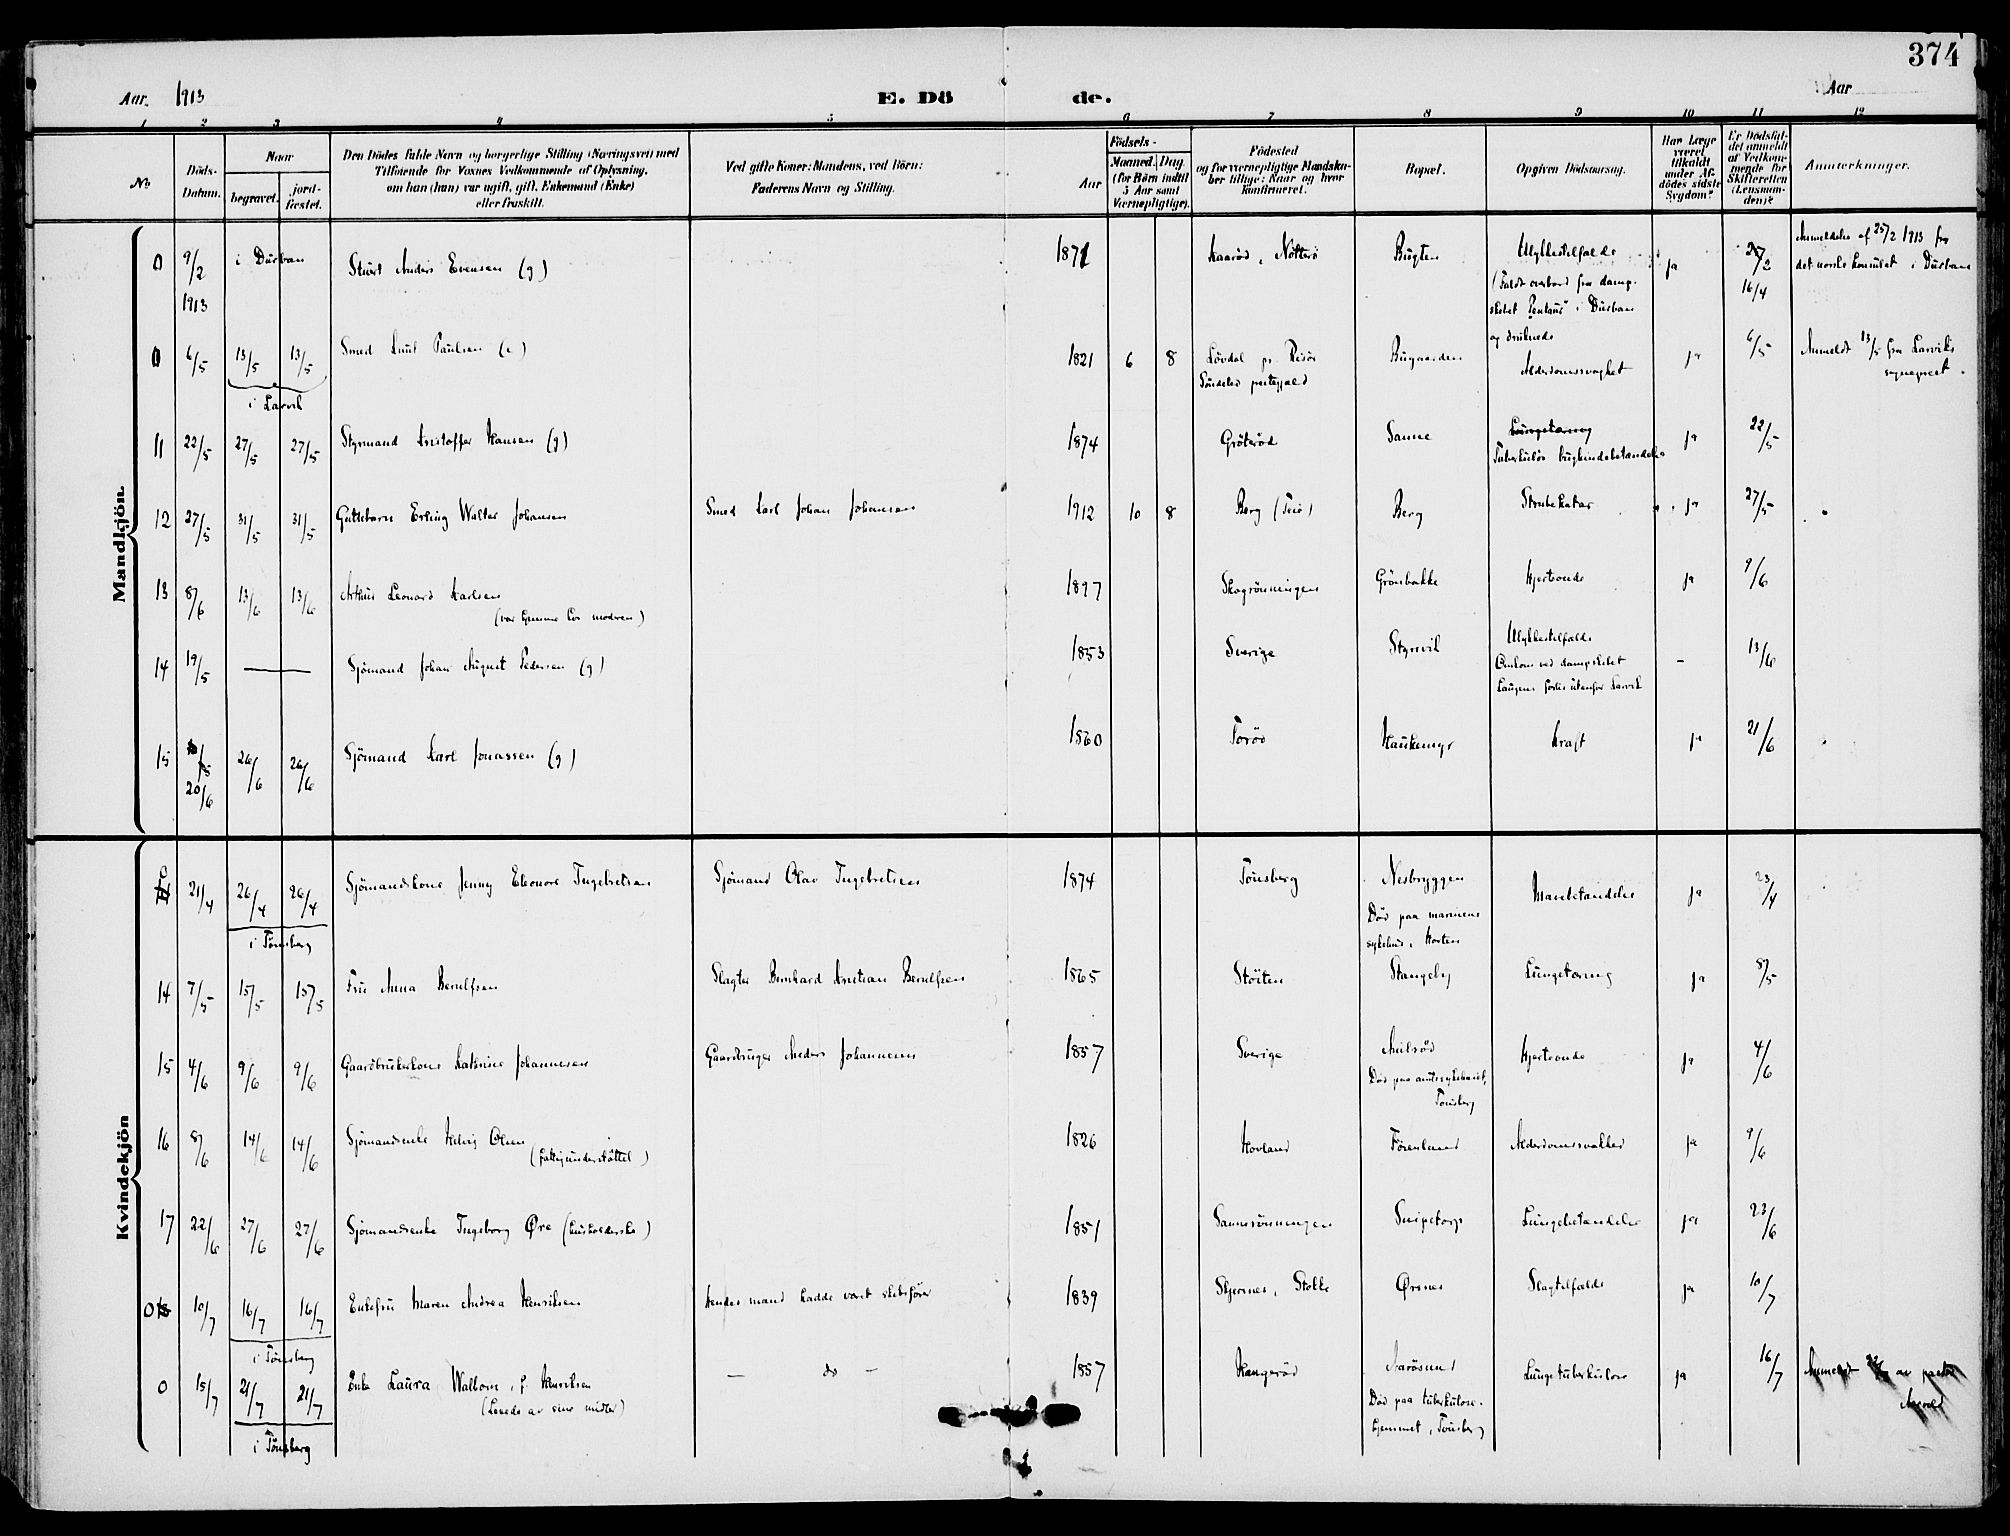 374
Aar. 1913 E. Dö de. Aar
1 2 3 4 5 6 7 8 9 10 11 12
No.
Döds-Datum.
Naar
begravet.
jord-fæstet.
Den Dödes fulde Navn og borgerlige Stilling (Næringsvei) med
Tilföiende for Voxnes Vedkommende af Oplysning,
om han (hun) var ugift, gift, Enkemand (Enke)
eller fraskilt.
Ved gifte Koner: Mandens, ved Börn:
Faderens Navn og Stilling.
Födsels-
Aar
Maaned. Dag.
(for Börn indtil
5 Aar samt
Værnepligtige).
Födested
og for værnepligtige Mandska-
ber tillige: Naar og hvor
konfirmeret.
Bopæl.
Opgiven Dödsaarsag.
Har Læge
været
tilkaldt
under Af-
dödes sidste
Sygdom?
Er Dödsfal-
det anmeldt
af Vedkom-
mende for
Skifteretten
(Lensman-
den)?
Anmærkninger.
Mandkjön.
0 9/2 1913 i Durban Stuert Anders Evensen (g) 1871 Kaarød, Nøtterø Bugten Ulykkestilfælde
(Faldt overbord fra damp-
skibet "Pentaur" i Durban
og druknede ja 25/2 16/4 Anmeldelse af 25/2 1913 fra
det norske konsulat i Durban
0 6/5 13/5 13/5 i Larvik Smed Knut Paulsen (e) 1821 6 8 Løvdal pr. Risør
Søndeled prestegjeld Bugaarden Alderdomssvaghet ja 6/5 Anmeldt 13/5 fra Larviks
sogneprest.
11 22/5 27/5 27/5 Styrmand Kristoffer Hansen (g) 1874 Grøterød Sanne Lungetæring
Tuberkuløs bughindebetændelse ja 22/5
12 27/5 31/5 31/5 Guttebarn Erling Walter Johansen Smed Karl Johan Johansen 1912 10 8 Berg Berg Strubekatar ja 27/5
13 8/6 13/6 13/6 Arthur Leonard Karlsen
(var hjemme hos moderen) 1897 Skogrønningen Grønbakke Hjerteonde ja 9/6
14 19/5 — Sjömand Johan August Pedersen (g) 1853 Sverige Styrvik Ulykkestilfælde
Omkom ved dampskibet
Laugens forlis utenfor Larvik - 13/6
15 20/6 26/6 26/6 Sjömand Karl Jonassen (g) 1860 Torød Haukemyr Kræft ja 21/6
Kvindekjön
0 21/4 26/4 26/4 i Tönsberg Sjömandskone Jenny Eleonore Ingebretsen Sjömand Olav Ingebretsen 1874 Tönsberg Nesbryggen
Død paa marinens
sykehus, Horten Mavebetændelse ja 23/4
14 7/5 15/5 15/5 Fru Anna Berulfsen Slagter Bernhard Kristian Berulfsen 1865 Støiten Stangeby Lungetæring ja 8/5
15 4/6 9/6 9/6 Gaardbrukerkone Kathrine Johannesen Gaardbruger Anders Johannesen 1857 Sverige
Død paa amtssykehuset,
Tønsberg Hjerteonde ja 4/6
16 8/6 14/6 14/6 Sjömandsenke Helvig Olsen
(fattigunderstøttet) 1826 HovlandFørenlund Alderdomssvakhed ja 9/6
17 22/6 27/6 27/6 Sjömandsenke Ingeborg Øre (husholderske) 1851 Sannsrønningen Snipetorp Lungebetændelse ja 23/6
0 18 10/7 16/7 16/7 i Tønsberg Enkefru Maren Andrea Henriksen Hendes mand hadde været skibsfører 1839 Skjernes, Stokke Ørsnes Slagtilfælde ja 10/7
0 15/7 21/7 21/7 i Tönsberg Enke Laura Walbom, f. Henriksen
(Levede av sine midler) — do — 1857 Haugerød Aarøsund
Død paa tuberkulose-
hjemmet, Tønsberg Lungetuberkulose ja 16/7 Anmeldt av pastor